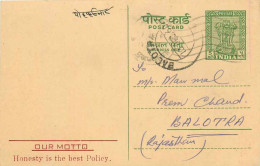 पोस्ट कार्ड
POST CARD
INDIA
To
M/s. Manmal
Prem Chand
BALOTRA
(Rajasthan)
OUR MOTTO
Honesty is the best Policy.